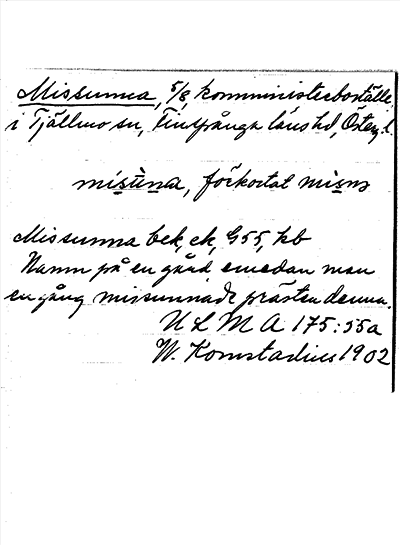 Missunna, 5/8 komministerboställe
i Tjällmo sn, Finspånga läns hd, Östergl.
misùna, förkortat misns
Missunna bek, ek, G55, kb
Namn på en gård emedan man
en gång missunnade prästen denna.
ULMA 175:55a
W. Komstadius 1902